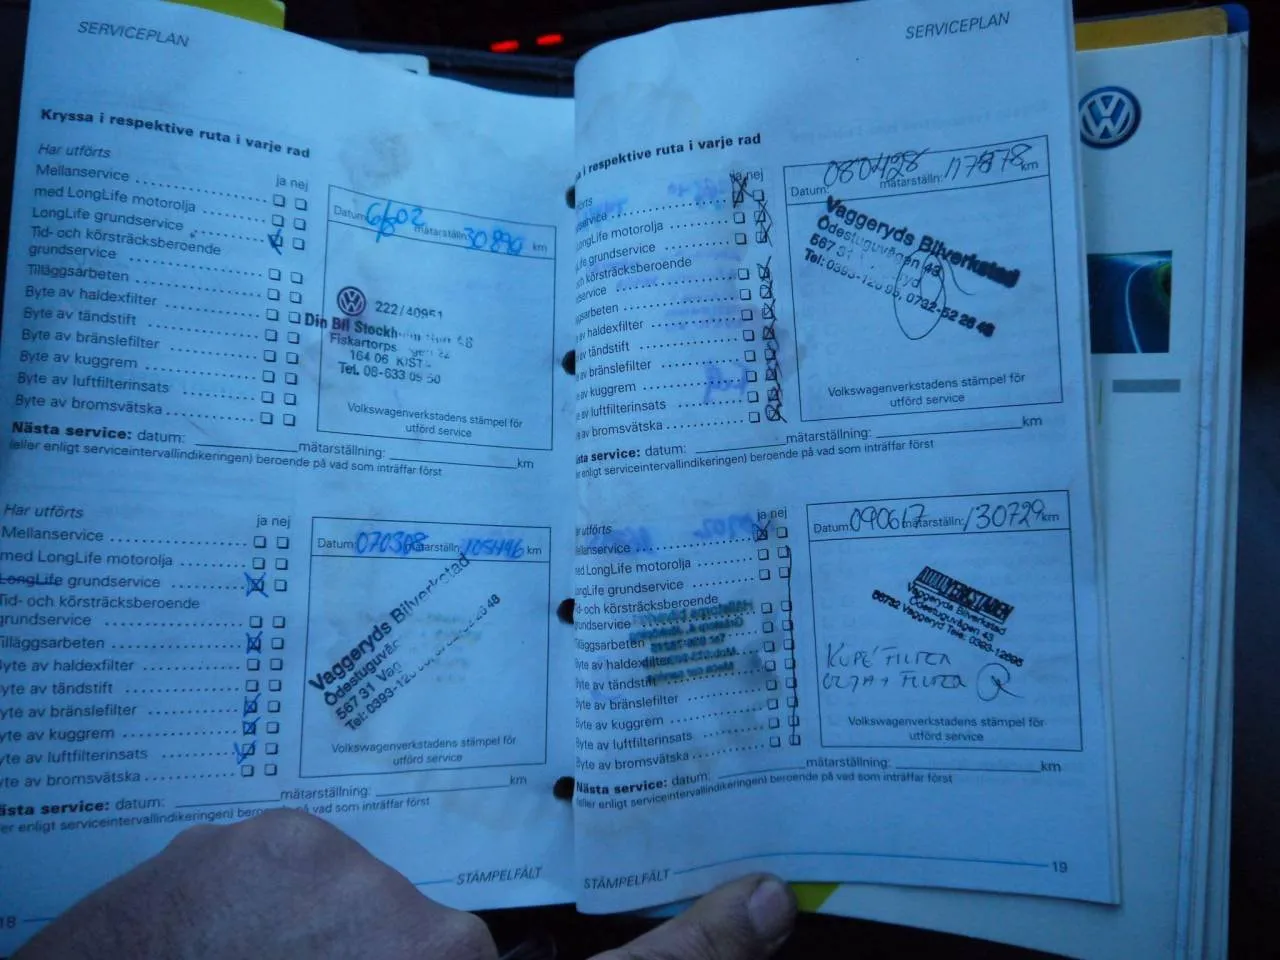 SERVICEPLAN
Kryssa i respektive ruta i varje rad
Har utförts
ja nej
Mellanservice
med LongLife motorolja
LongLife grundservice
Tid- och körsträcksberoende
grundservice
Tilläggsarbeten
Byte av haldexfilter
Byte av tändstift
Byte av bränslefilter
Byte av kuggrem
Byte av luftfilterinsats
Byte av bromsvätska
Nästa service: datum: mätarställning: km
(eller enligt serviceintervallindikeringen) beroende på vad som inträffar först
Datum: mätarställn: 30890 km
222/40951
Din Bil Stockh
Fiskartorps
164 06 KIST
Tel. 08-633 05 50
Volkswagenverkstadens stämpel för
utförd service
Har utförts
ja nej
Mellanservice
med LongLife motorolja
LongLife grundservice
Tid- och körsträcksberoende
grundservice
Tilläggsarbeten
Byte av haldexfilter
Byte av tändstift
yte av bränslefilter
yte av kuggrem
yte av luftfilterinsats
yte av bromsvätska
ästa service: datum: km
ler enligt serviceintervallindikeringen) bero på vad som inträffar först
Datum: 070308 mätarställn: 105496 km
Vaggeryds Bilverkstad
Ödestuguväg
567 31 Vag
Tel: 0393-12
Volkswagenverkstadens stämpel för
utförd service
STÄMPELFÄLT
18
SERVICEPLAN
i respektive ruta i varje rad
förts
ja nej
service
ongLife motorolja
LongLife grundservice
och körsträcksberoende
service
gsarbeten
av haldexfilter
av tändstift
av bränslefilter
av kuggrem
av luftfilterinsats
av bromsvätska
sta service: datum: mätarställning: km
er enligt serviceintervallindikeringen) beroende på vad som inträffar först
Datum: 080428 mätarställn: 117878 km
Vaggeryds Bilverkstad
Ödestuguvägen 43
567 31
Tel: 0393-12695, 0732-52 26 48
Volkswagenverkstadens stämpel för
utförd service
ar utförts
ja nej
Mellanservice
med LongLife motorolja
LongLife grundservice
d- och körsträcksberoende
undservice
lläggsarbeten
Byte av haldexfilter
yte av tändstift
Byte av bränslefilter
Byte av kuggrem
Byte av luftfilterinsats
Byte av bromsvätska
Nästa service: datum: mätarställning: km
(eller enligt serviceintervallindikeringen) beroende på vad som inträffar först
Datum: 090617 mätarställn: 130729 km
Vaggeryds Bilverkstad
Ödestuguvägen 43
56732 Vaggeryd Tele: 0393-12695
KUPÉFILTER
OLJA + FILTER
Volkswagenverkstadens stämpel för
utförd service
STÄMPELFÄLT
19